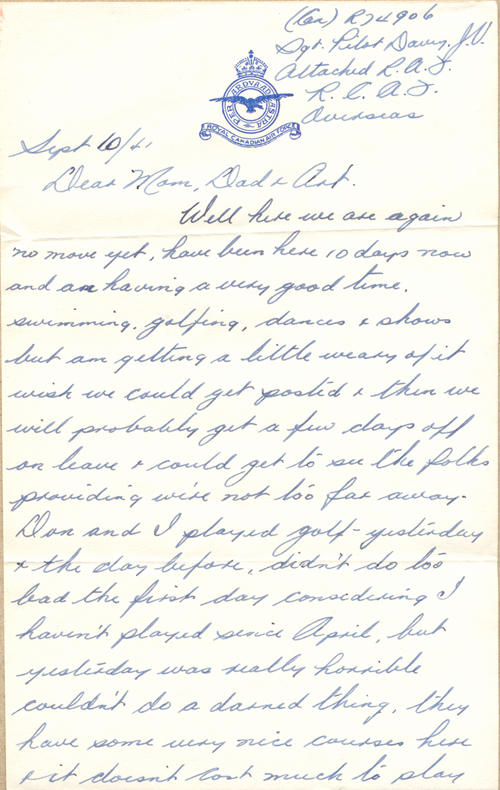 (Can) R74906
Sgt. Pilot Davey, J.V.
Attached R.A.F.
R.C.A.F.
Overseas
PER ARDVA AD ASTRA
ROYAL CANADIAN AIR FORCE
Sept 10/41
Dear Mom, Dad & Art.
Well here we are again
no move yet, have been here 10 days now
and am having a very good time.
swimming, golfing, dances & shows
but am getting a little weary of it
wish we could get posted & then we
will probably get a few days off
on leave & could get to see the folks
providing we're not too far away.
Don and I played golf - yesterday
& the day before, didn't do too
bad the first day considering I
haven't played since April, but
yesterday was really horrible
couldn't do a darned thing, they
have some very nice courses here
& it doesn't cost much to play